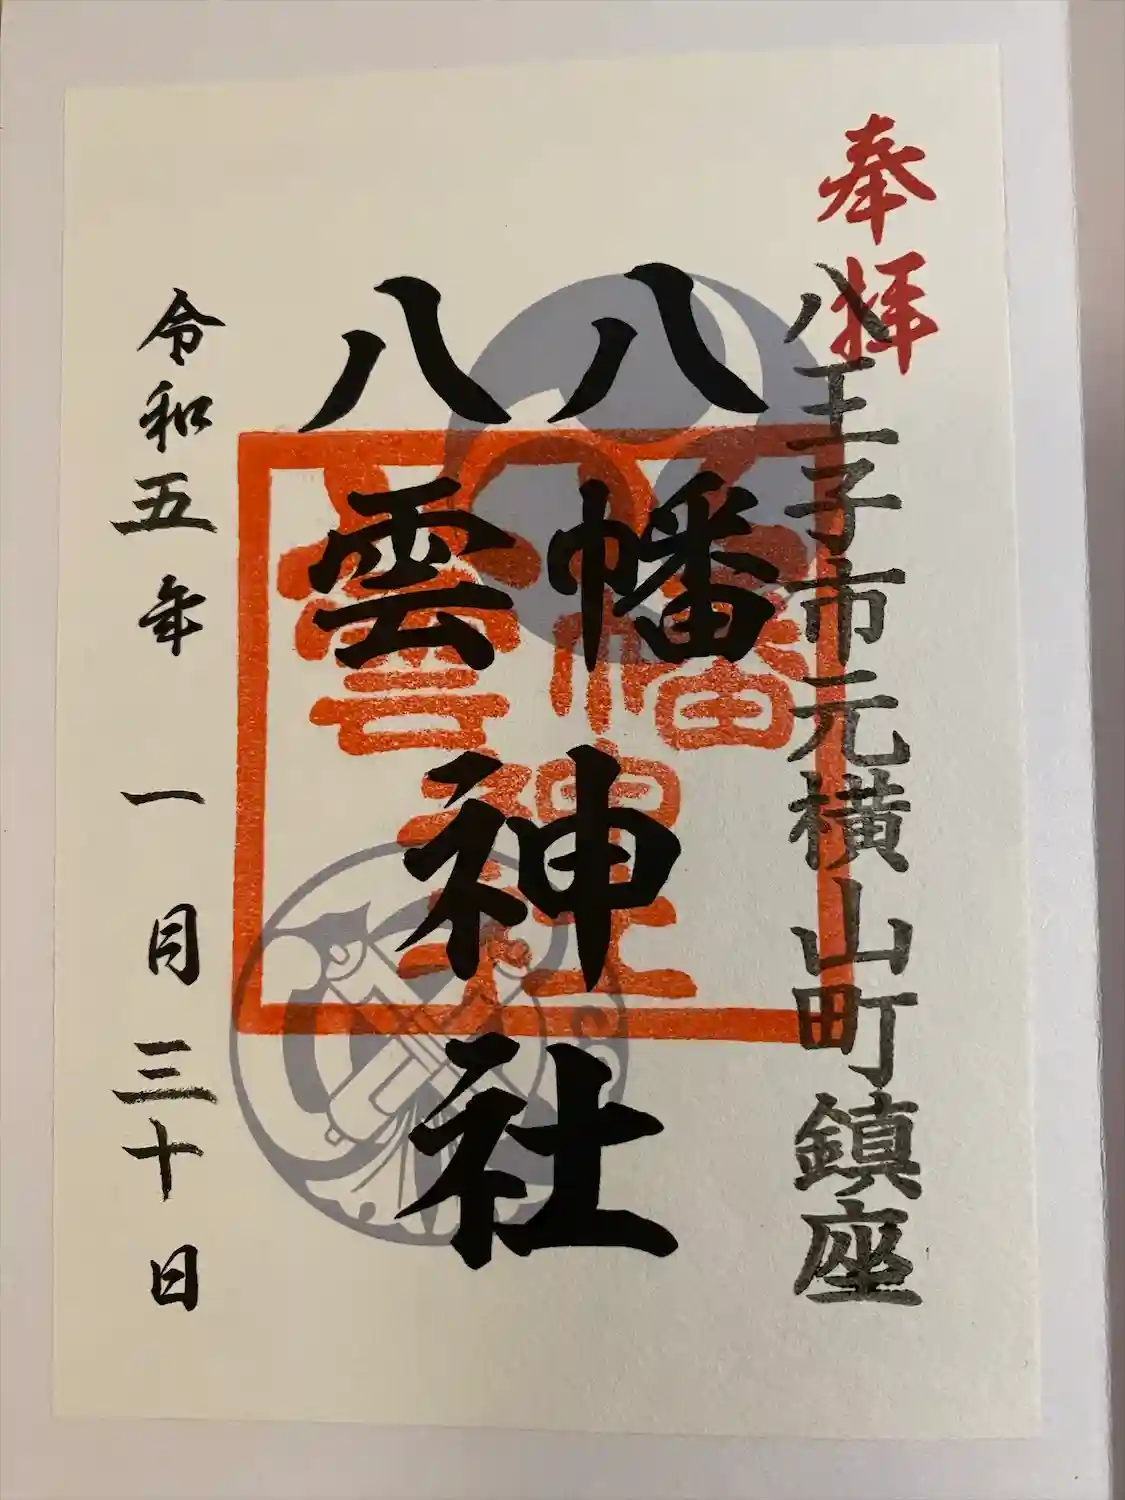 奉拝
八王子市元横山町鎮座
八幡
八雲
神社
八幡
八雲
神社
令和五年 一月三十日